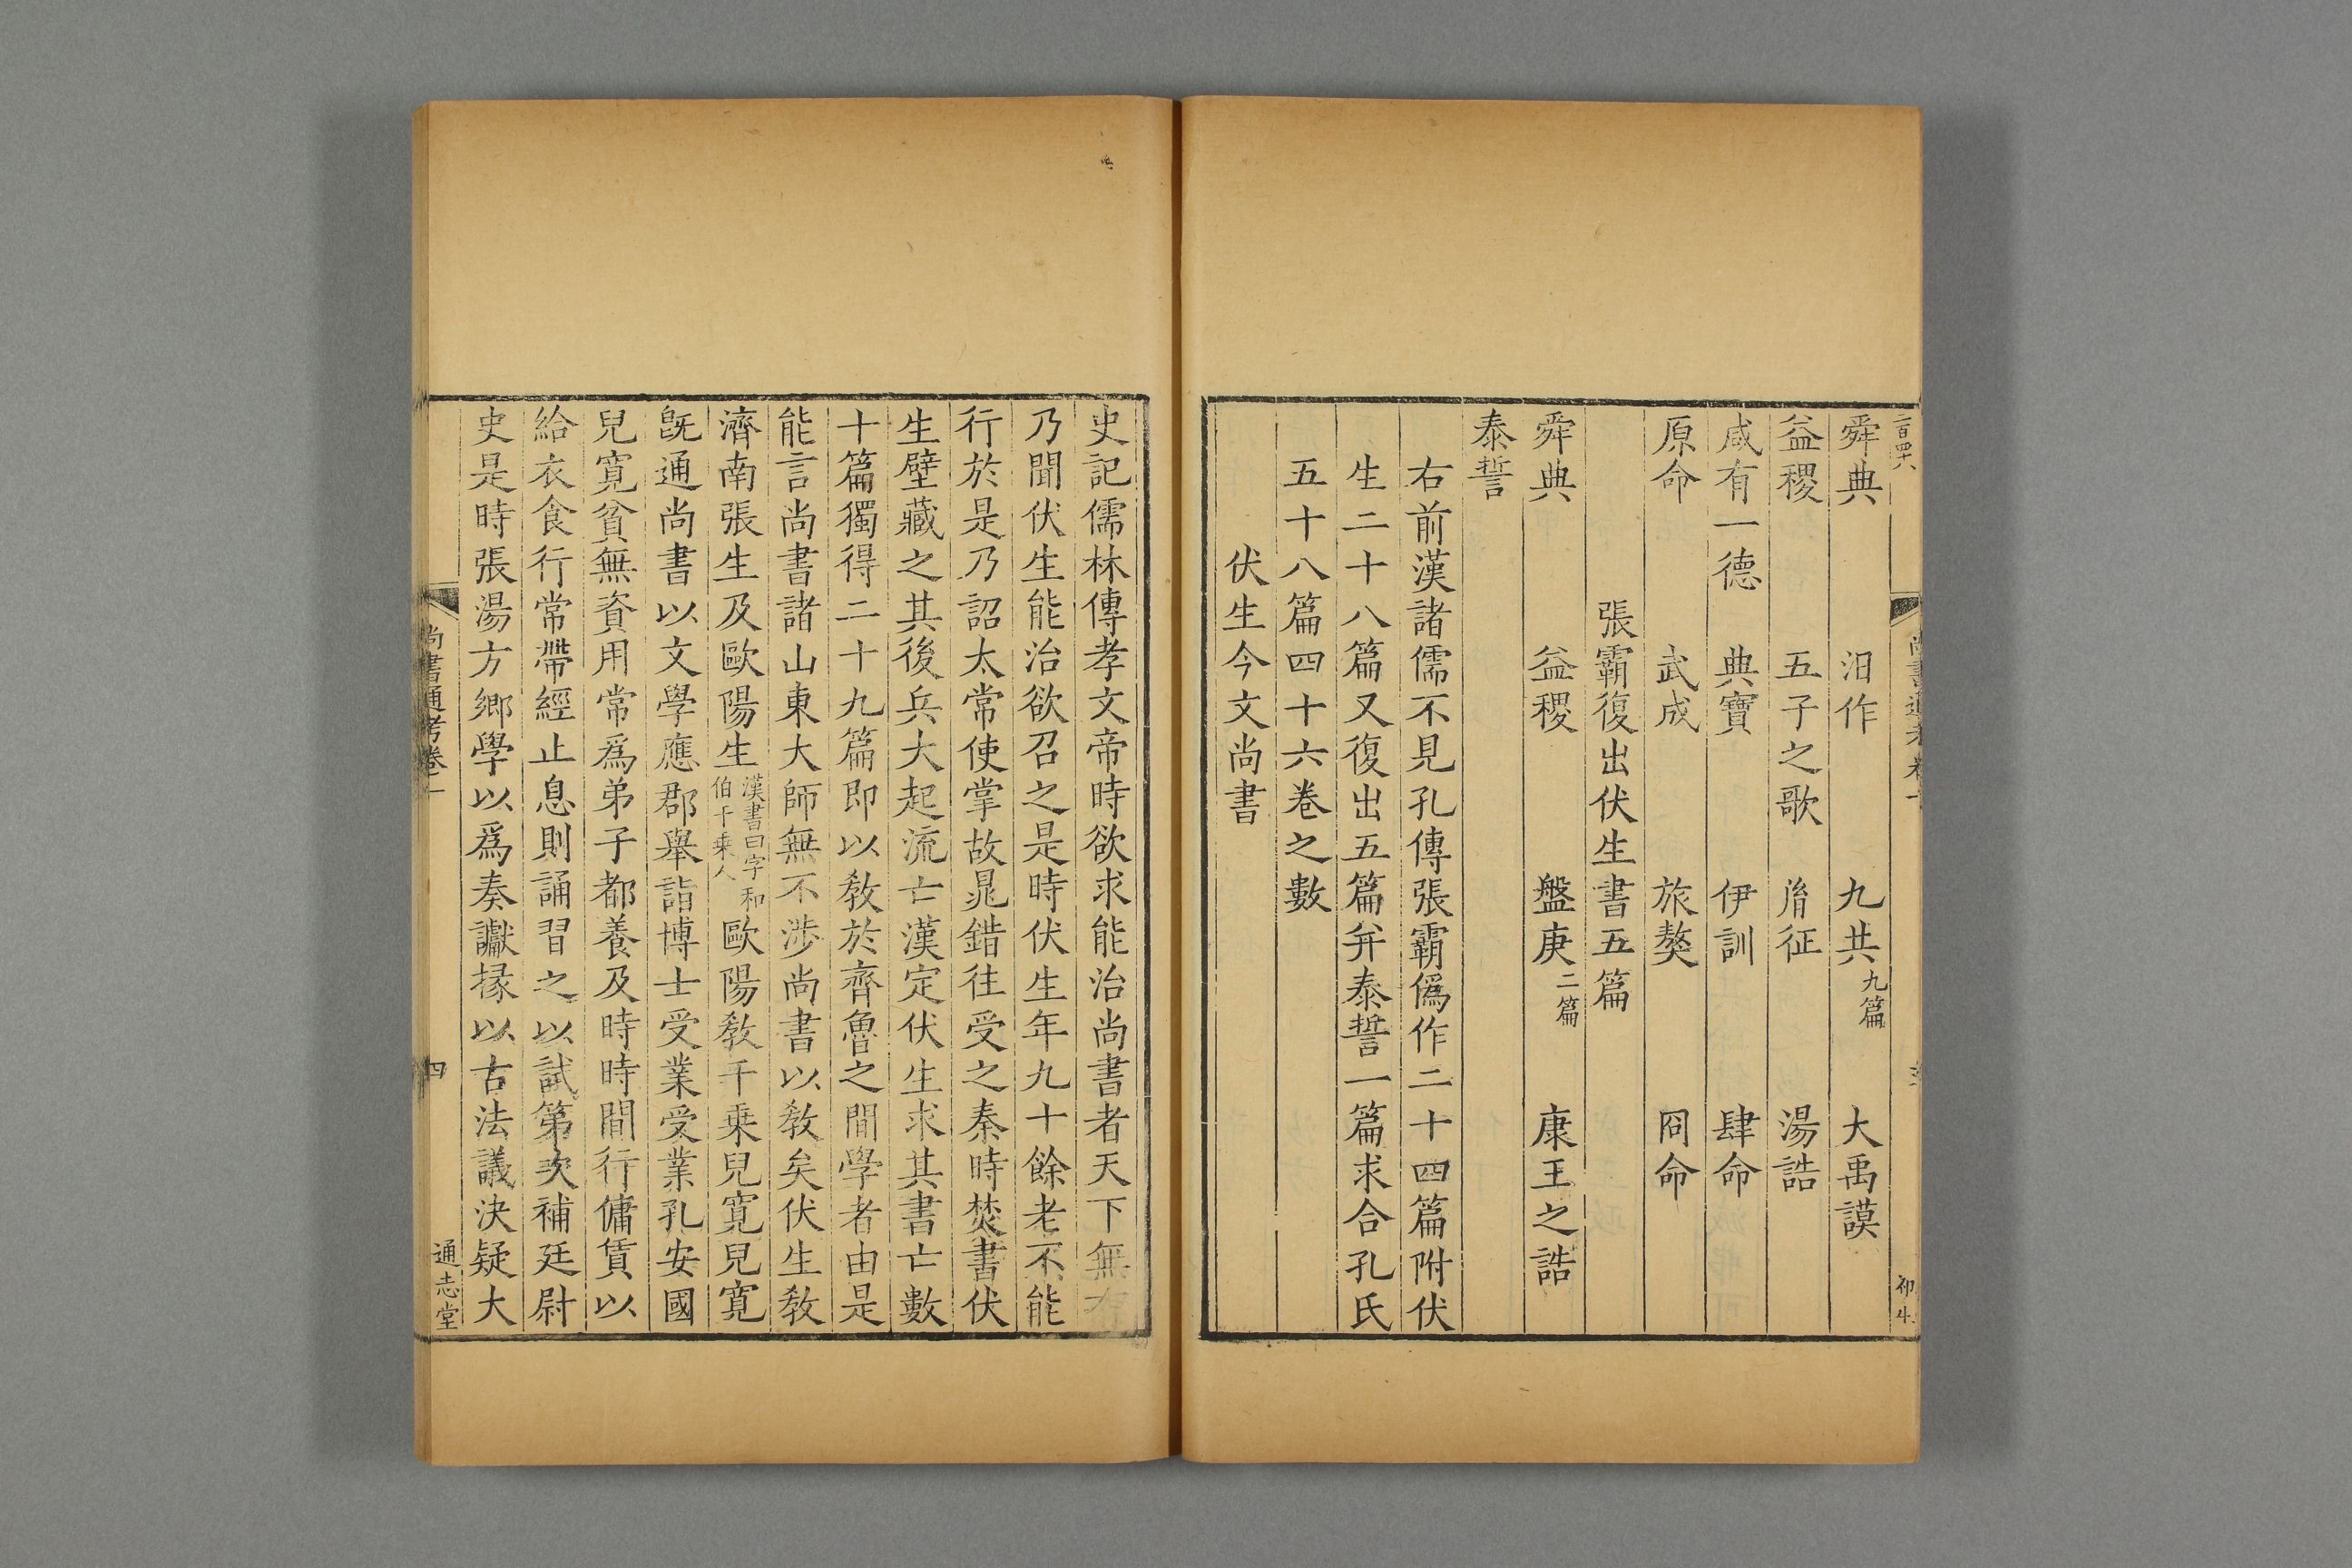 舜典　汨作　九共九篇　大禹謨
益稷　五子之歌　胤征　湯誥
咸有一德　典寶　伊訓　肆命
原命　武成　旅獒　冏命
張霸復出伏生書五篇
舜典　益稷　盤庚二篇　康王之誥
泰誓
右前漢諸儒不見孔傳張霸僞作二十四篇附伏
生二十八篇又復出五篇并泰誓一篇求合孔氏
五十八篇四十六卷之數
伏生今文尚書
史記儒林傳孝文帝時欲求能治尚書者天下無
乃聞伏生能治欲召之是時伏生年九十餘老不能
行於是乃詔太常使掌故晁錯往受之秦時焚書伏
生壁藏之其後兵大起流亡漢定伏生求其書亡數
十篇獨得二十九篇即以敎於齊魯之間學者由是
能言尚書諸山東大師無不涉尚書以敎矣伏生敎
濟南張生及歐陽生漢書曰字和伯千乗人歐陽敎千乗兒寛兒寛
旣通尚書以文學應郡舉詣博士受業受業孔安國
兒寛貧無資用常爲弟子都養及時時間行傭賃以
給衣食行常帶經止息則誦習之以試第次補廷尉
史是時張湯方鄉學以爲奏讞掾以古法議決疑大
尚書通考卷一
四
通志堂